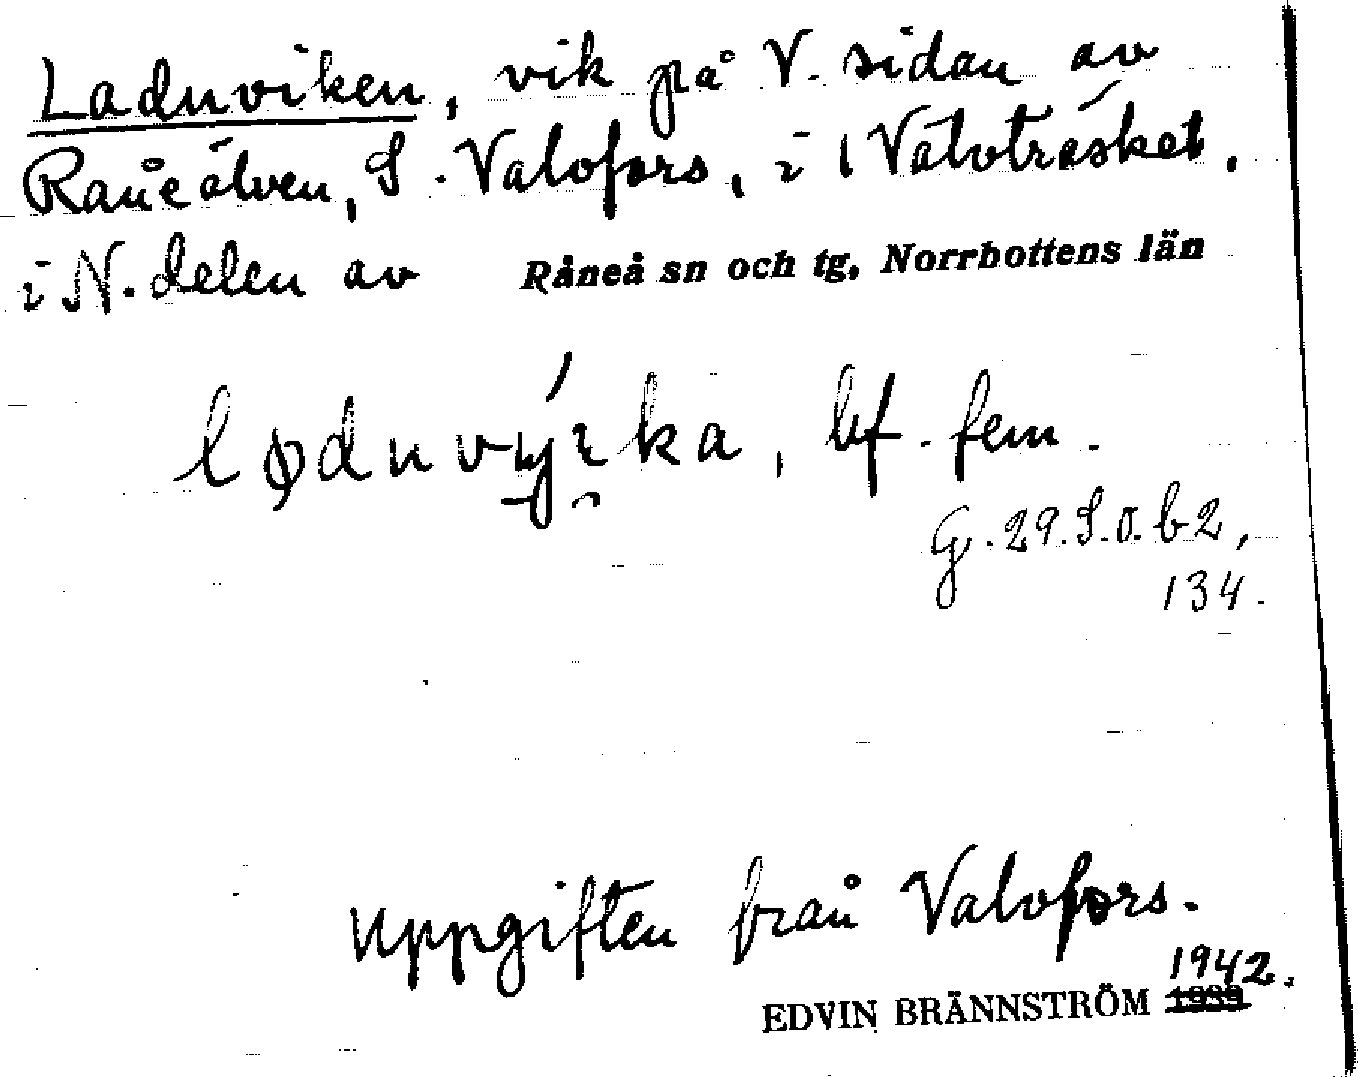 Laduviken, vik på V. sidan av
Råneälven, S. Valofors, i Valvträsket,
i N. delen av Råneå sn och tg, Norrbottens län
bf. fem.
G. 29. S. O. b 2,
134.
Uppgiften från Valofors.
1942.
EDVIN BRÄNNSTRÖM 1939